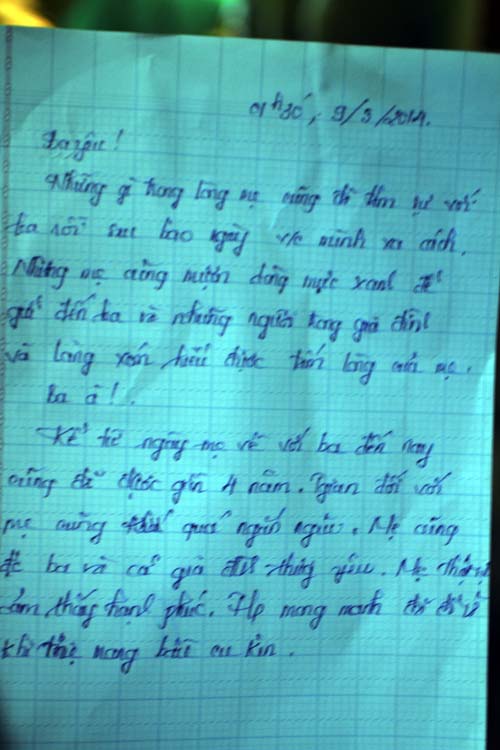 01h30, 9/3/2014.
Ba yêu!
Những gì trong lòng mẹ cũng đã tâm sự với
ba rồi sau bao ngày v/c mình xa cách.
Nhưng mẹ cũng mượn dòng mực xanh để
gửi đến ba và những người trong gia đình
và làng xóm hiểu được tấm lòng của mẹ.
Ba à!.
Kể từ ngày mẹ về với ba đến nay
cũng đã được gần 4 năm. Tgian đối với
mẹ cũng quá ngắn ngủi. Mẹ cũng
đc ba và cả gia đình thương yêu. Mẹ
cảm thấy hạnh phúc. Hp mong manh đã
khi mẹ mang bầu cu Kin.